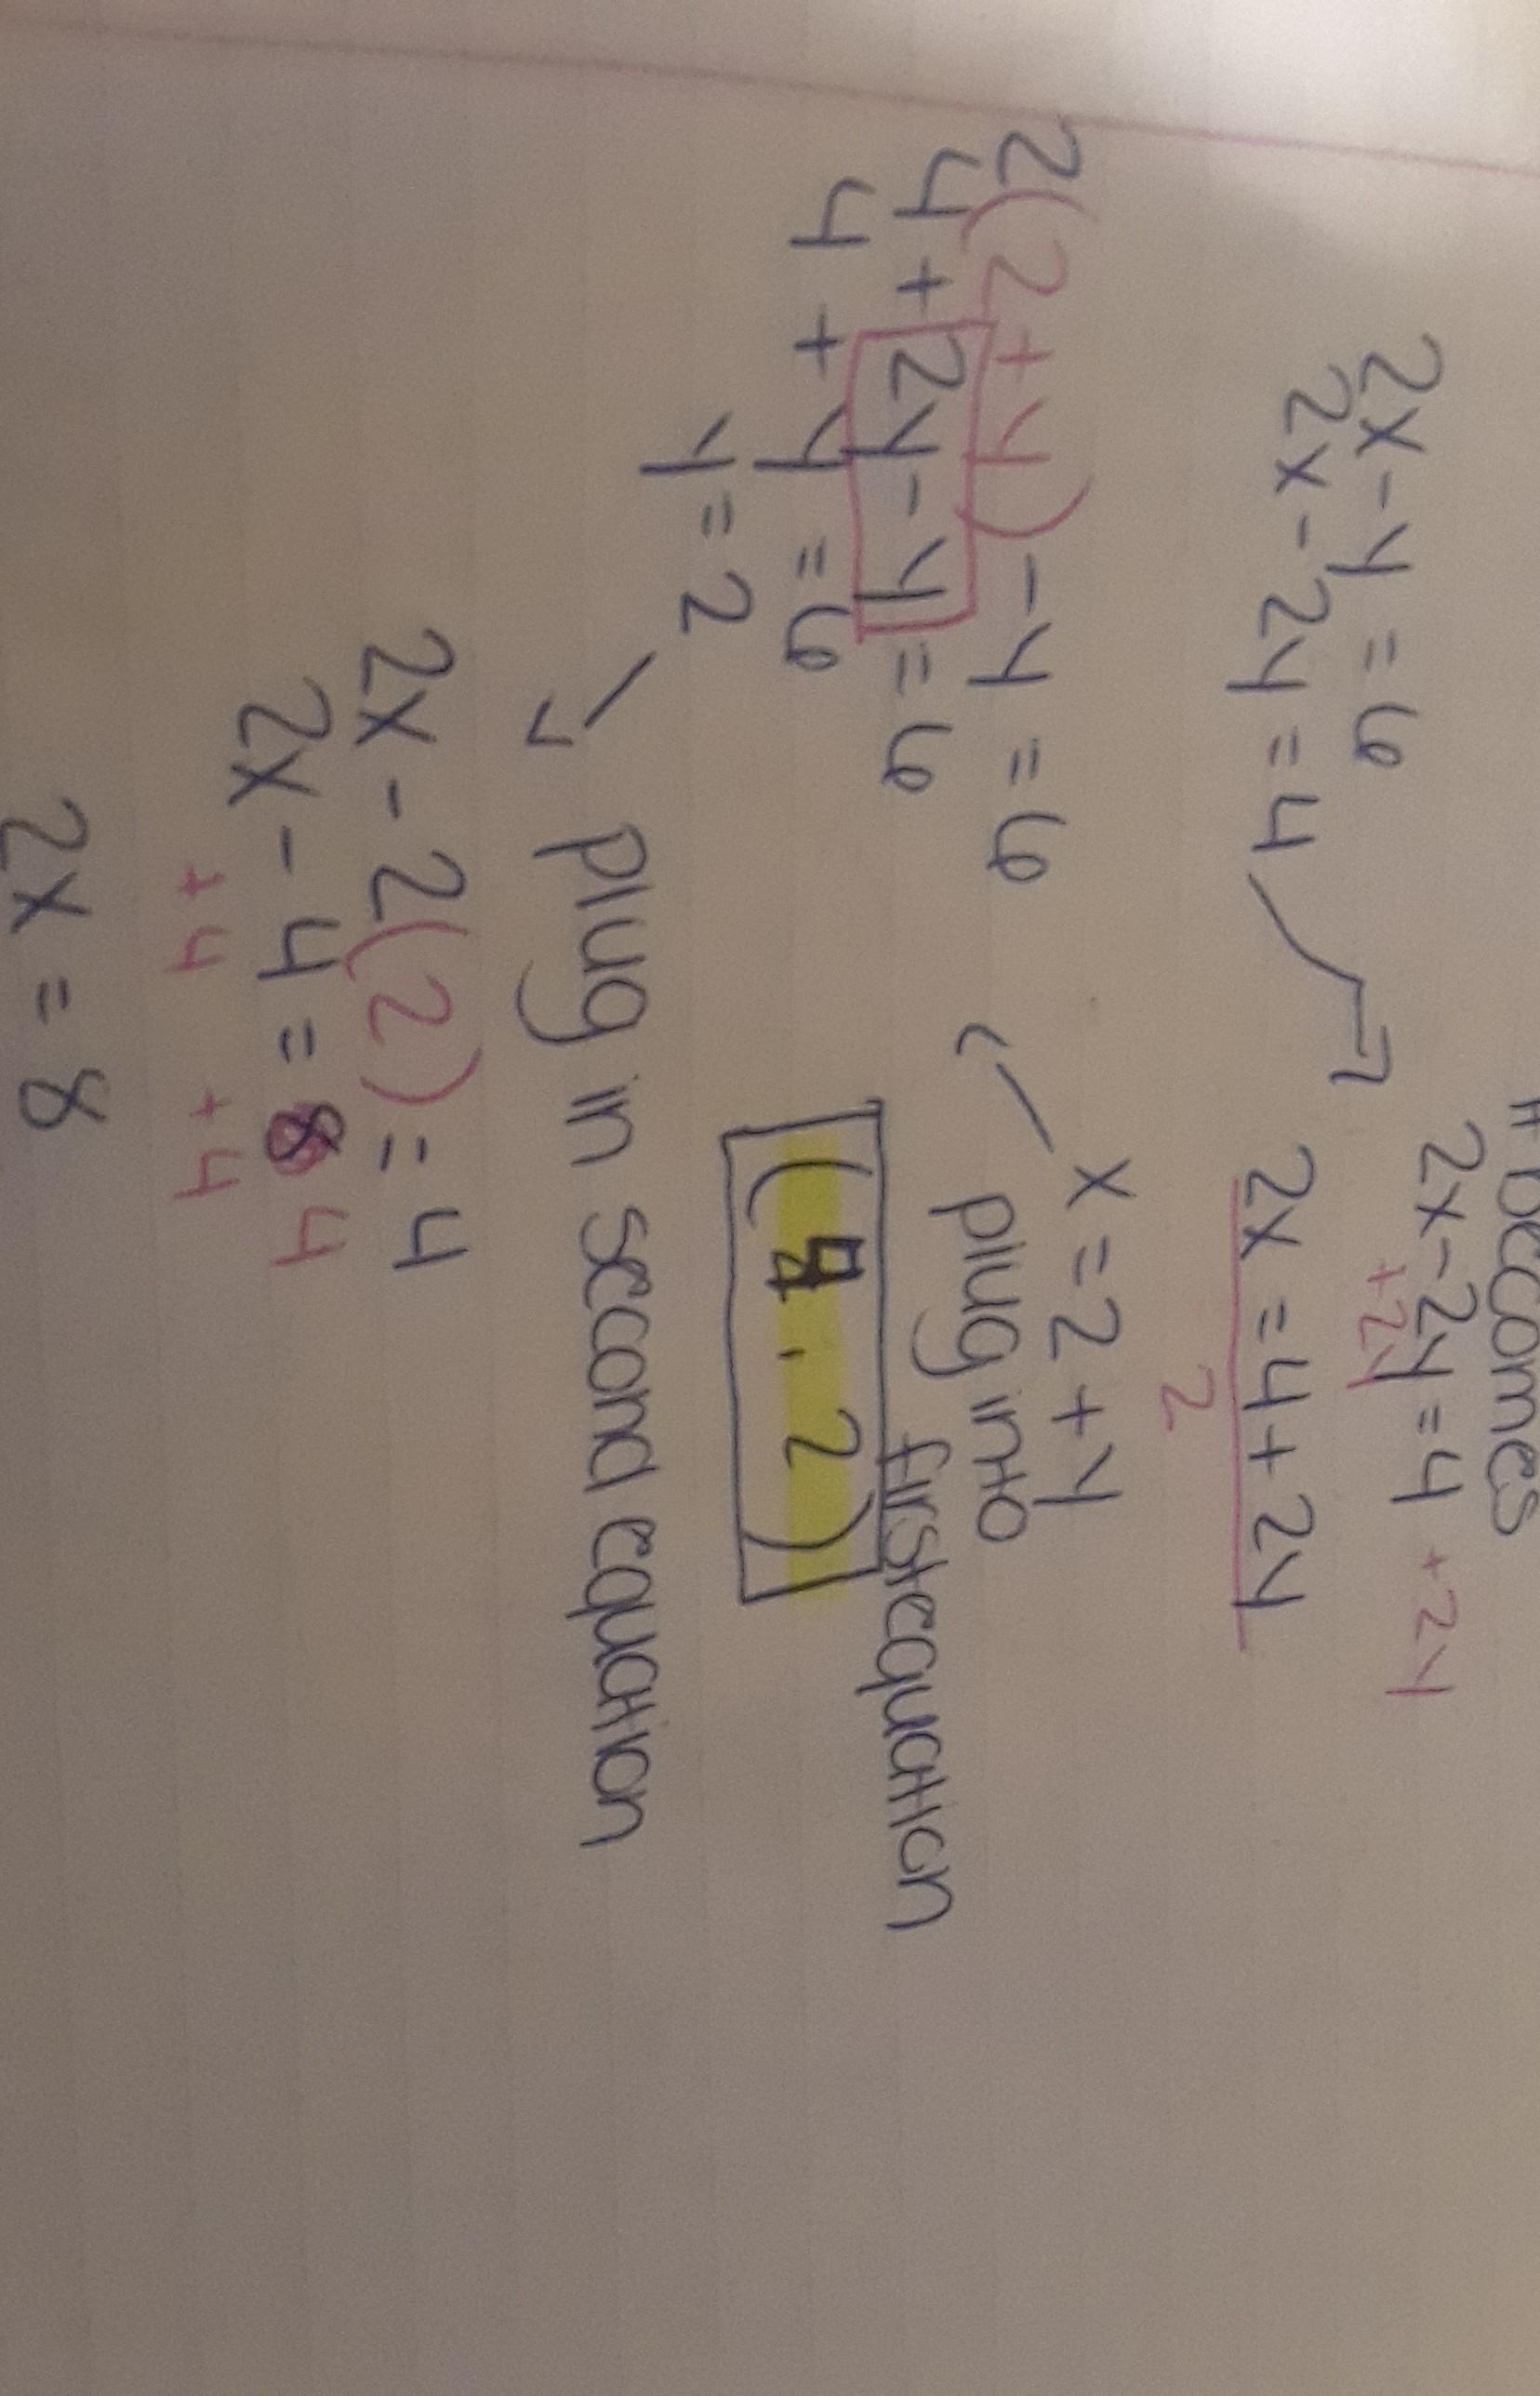 becomes
2x - y = 6
2x - 2y = 4
2x - 2y = 4
+2y +2y
2x = 4 + 2y
2
x = 2 + y
plug into
first equation
2(2 + y) - y = 6
4 + 2y - y = 6
4 + y = 6
y = 2
( 4, 2)
plug in second equation
2x - 2(2) = 4
2x - 4 = 4
+4 +4
2x = 8